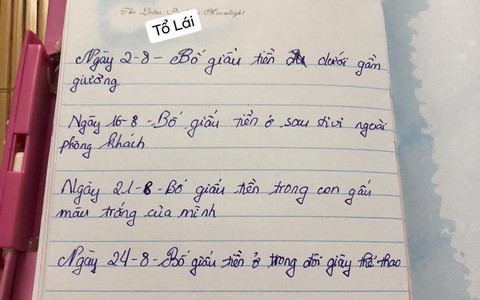 The Lotus Moonlight
Tổ Lái
Ngày 2-8 - Bố giấu tiền dưới gầm
giường
Ngày 16-8 - Bố giấu tiền ở sau tivi ngoài
phòng khách
Ngày 21-8 - Bố giấu tiền trong con gấu
màu trắng của mình
Ngày 24-8 - Bố giấu tiền ở trong đôi giày thể thao